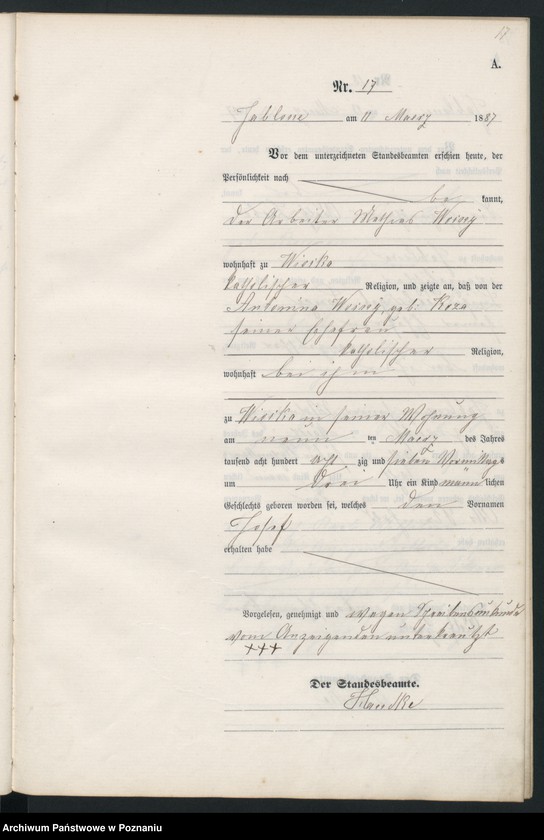 17
A.
Nr. 17
Jablone am 11 Maerz 1887
Vor dem unterzeichneten Standesbeamten erschien heute, der
Persönlichkeit nach
be kannt,
der Arbeiter Mathias Woisig
wohnhaft zu Wioska
katholischer Religion, und zeigte an, daß von der
Antonina Woisig, geb. Koza
seiner Ehefrau
katholischer Religion,
wohnhaft bei ihm
zu Wioska in seiner Wohnung
am neun ten Maerz des Jahres
tausend acht hundert acht zig und sieben Vormittags
um drei Uhr ein Kind männ lichen
Geschlechts geboren worden sei, welches den Vornamen
Josef
erhalten habe
Vorgelesen, genehmigt und wegen Schreibensunkunde
vom Anzeigenden unterkreuzt
+++
Der Standesbeamte.
Handke
Archiwum Państwowe w Poznaniu